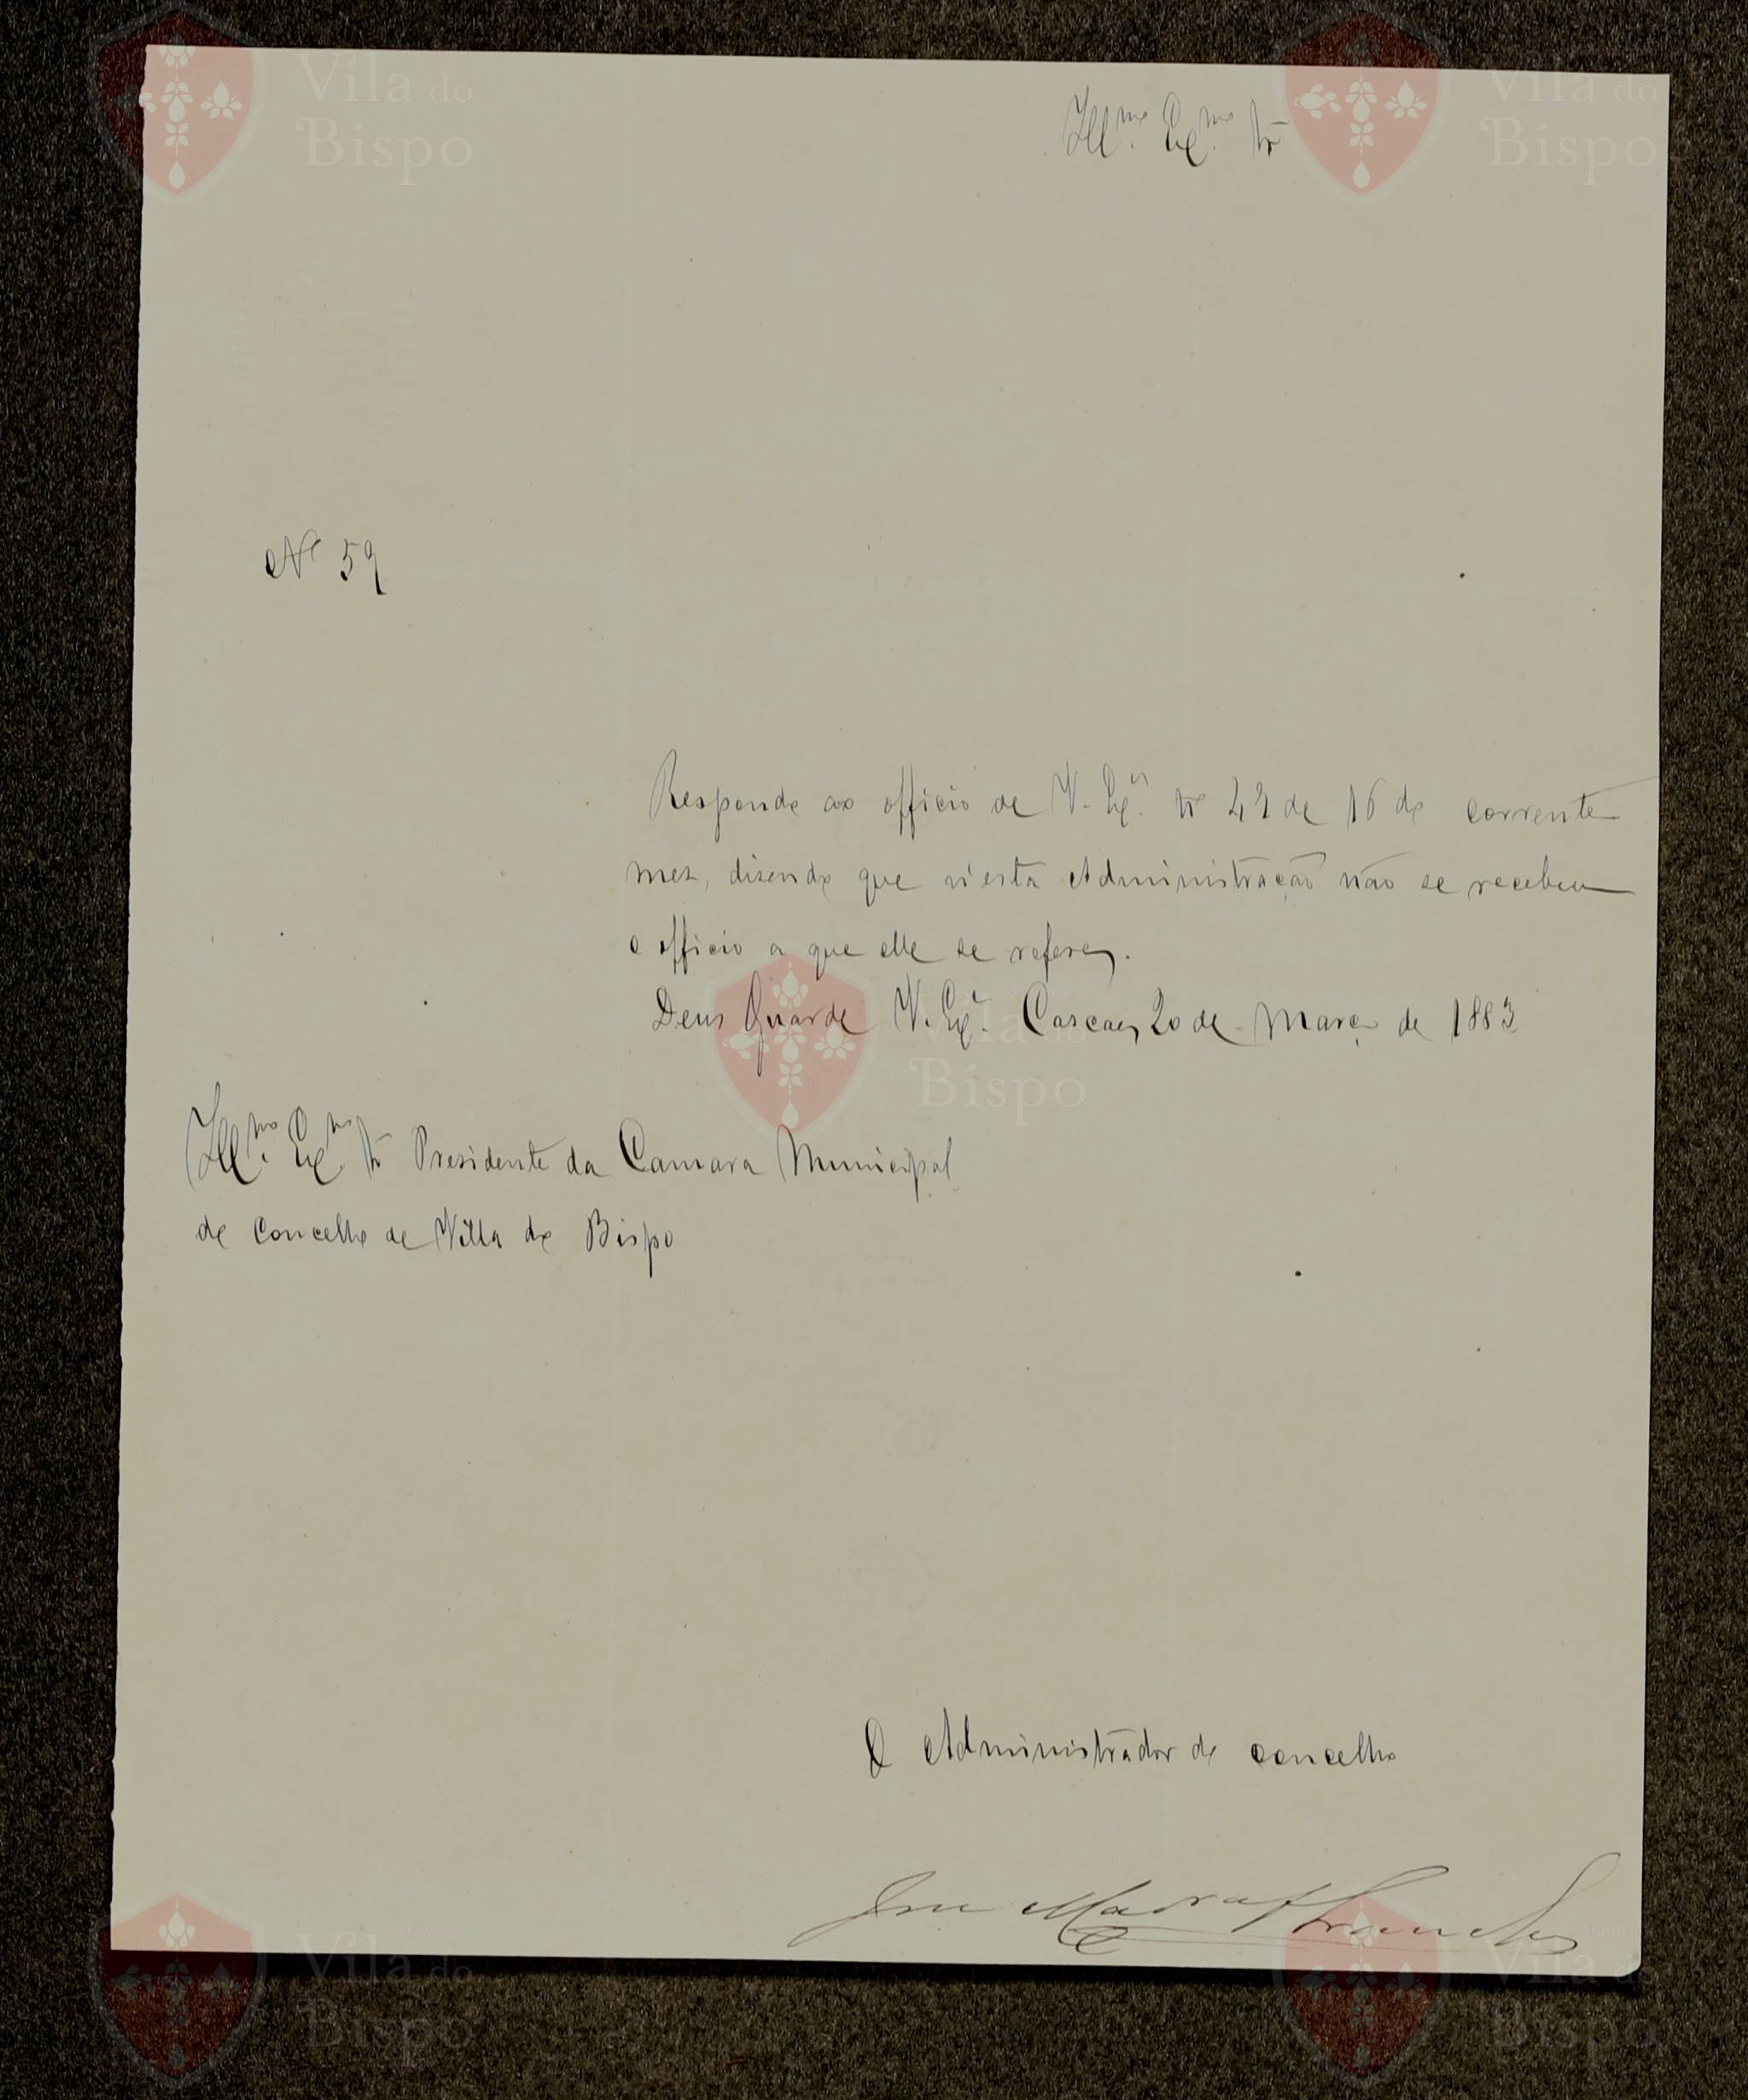 Vila do
Bispo
Vila do
Bispo
Ill.mo Ex.mo Sr
Nº 59
Respondo ao officio de V. Ex.ª nº 42 de 16 do corrente
mez, disendo que n'esta Administração não se recebeu
o officio a que elle se refere.
Deus Guarde V. Ex.ª. Cascaes 20 de Março de 1883
Vila do
Bispo
Ill.mo Ex.mo Sr Presidente da Camara Municipal
do Concelho de Villa do Bispo
O Administrador do concelho
Vila do
Bispo
Vila do
Bispo